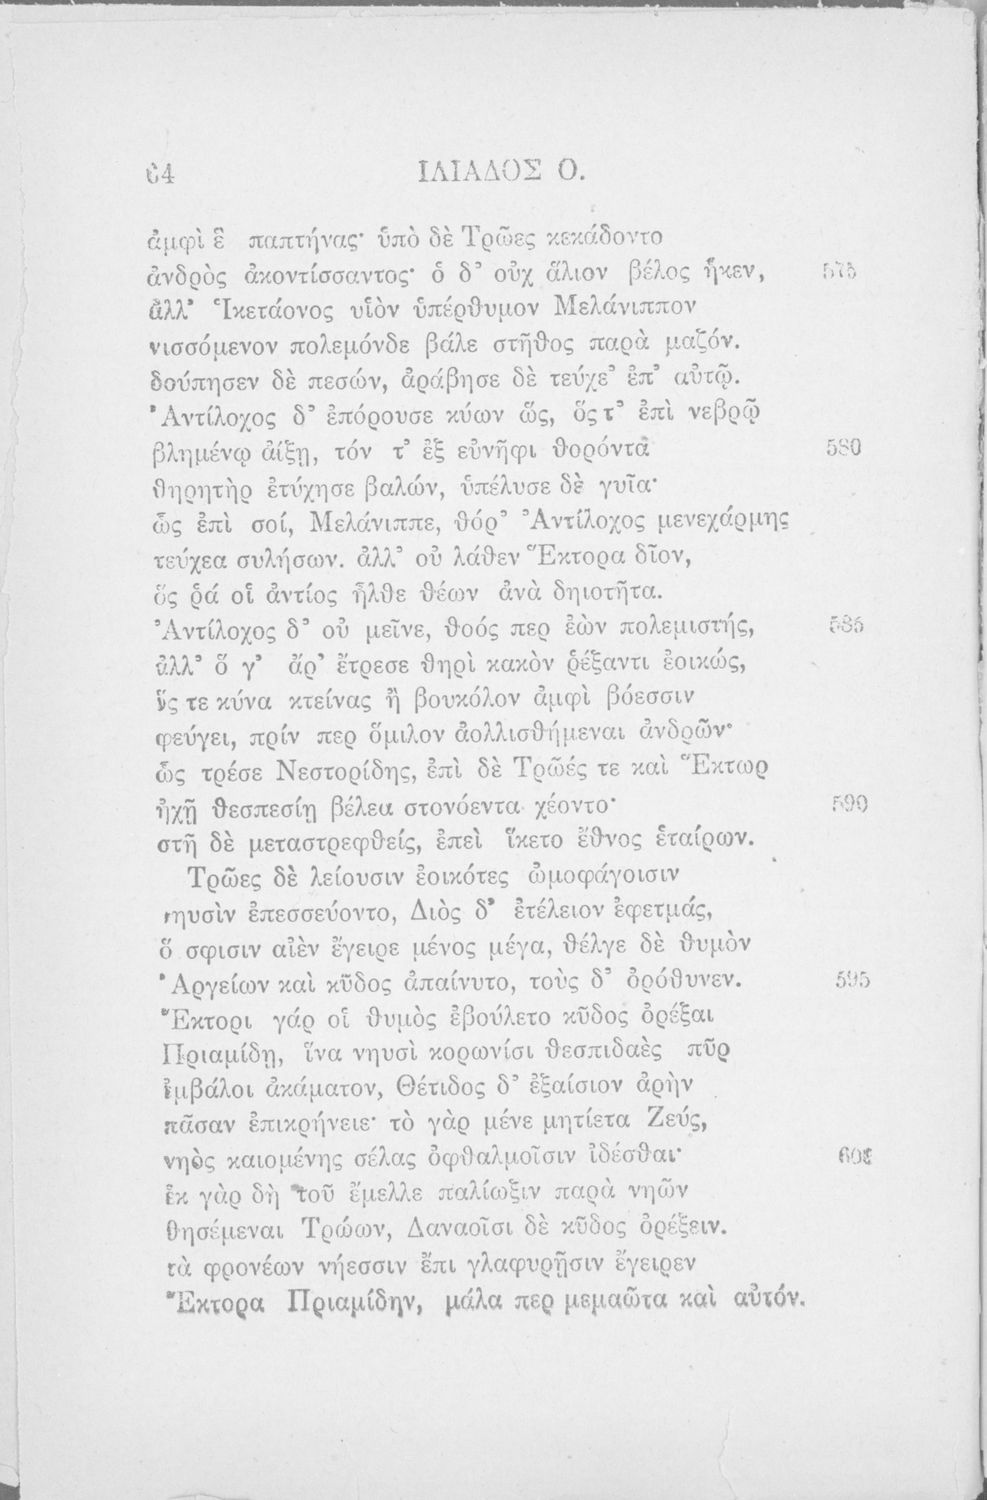 64 ΙΛΙΑΔΟΣ Ο.
ἀμφὶ ἓ παπτήνας· ὑπὸ δὲ Τρῶες κεκάδοντο
ἀνδρὸς ἀκοντίσσαντος· ὁ δ᾽ οὐχ ἅλιον βέλος ἧκεν, 575
ἀλλ᾽ Ἱκετάονος υἱὸν ὑπέρθυμον Μελάνιππον
νισσόμενον πολεμόνδε βάλε στῆθος παρὰ μαζόν.
δούπησεν δὲ πεσών, ἀράβησε δὲ τεύχε᾽ ἐπ᾽ αὐτῷ.
Ἀντίλοχος δ᾽ ἐπόρουσε κύων ὥς, ὅς τ᾽ ἐπὶ νεβρῷ
βλημένῳ ἀίξῃ, τόν τ᾽ ἐξ εὐνῆφι θορόντα 580
θηρητὴρ ἐτύχησε βαλών, ὑπέλυσε δὲ γυῖα·
ὣς ἐπὶ σοί, Μελάνιππε, θόρ᾽ Ἀντίλοχος μενεχάρμης
τεύχεα συλήσων. ἀλλ᾽ οὐ λάθεν Ἕκτορα δῖον,
ὅς ῥά οἱ ἀντίος ἦλθε θέων ἀνὰ δηιοτῆτα.
Ἀντίλοχος δ᾽ οὐ μεῖνε, θοός περ ἐὼν πολεμιστής, 585
ἀλλ᾽ ὅ γ᾽ ἄρ᾽ ἔτρεσε θηρὶ κακὸν ῥέξαντι ἐοικώς,
ὅς τε κύνα κτείνας ἢ βουκόλον ἀμφὶ βόεσσιν
φεύγει, πρίν περ ὅμιλον ἀολλισθήμεναι ἀνδρῶν·
ὣς τρέσε Νεστορίδης, ἐπὶ δὲ Τρῶές τε καὶ Ἕκτωρ
ἠχῇ θεσπεσίῃ βέλεα στονόεντα χέοντο· 590
στῆ δὲ μεταστρεφθείς, ἐπεὶ ἵκετο ἔθνος ἑταίρων.
Τρῶες δὲ λείουσιν ἐοικότες ὠμοφάγοισιν
νηυσὶν ἐπεσσεύοντο, Διὸς δ᾽ ἐτέλειον ἐφετμάς,
ὅ σφισιν αἰὲν ἔγειρε μένος μέγα, θέλγε δὲ θυμὸν
Ἀργείων καὶ κῦδος ἀπαίνυτο, τοὺς δ᾽ ὀρόθυνεν. 595
Ἕκτορι γάρ οἱ θυμὸς ἐβούλετο κῦδος ὀρέξαι
Πριαμίδῃ, ἵνα νηυσὶ κορωνίσι θεσπιδαὲς πῦρ
ἐμβάλοι ἀκάματον, Θέτιδος δ᾽ ἐξαίσιον ἀρὴν
πᾶσαν ἐπικρήνειε· τὸ γὰρ μένε μητίετα Ζεύς,
νηὸς καιομένης σέλας ὀφθαλμοῖσιν ἰδέσθαι· 600
ἐκ γὰρ δὴ τοῦ ἔμελλε παλίωξιν παρὰ νηῶν
θησέμεναι Τρώων, Δαναοῖσι δὲ κῦδος ὀρέξειν.
τὰ φρονέων νήεσσιν ἔπι γλαφυρῇσιν ἔγειρεν
Ἕκτορα Πριαμίδην, μάλα περ μεμαῶτα καὶ αὐτόν.